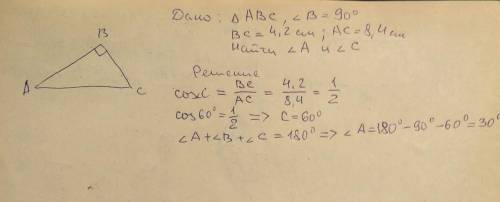 Дано: Δ ABC, ∠B = 90°
BC = 4,2 см; AC = 8,4 см
Найти ∠A и ∠C
Решение
cos C = BC/AC = 4,2/8,4 = 1/2
cos 60° = 1/2 => C = 60°
∠A + ∠B + ∠C = 180° => ∠A = 180° - 90° - 60° = 30°
B
A
C